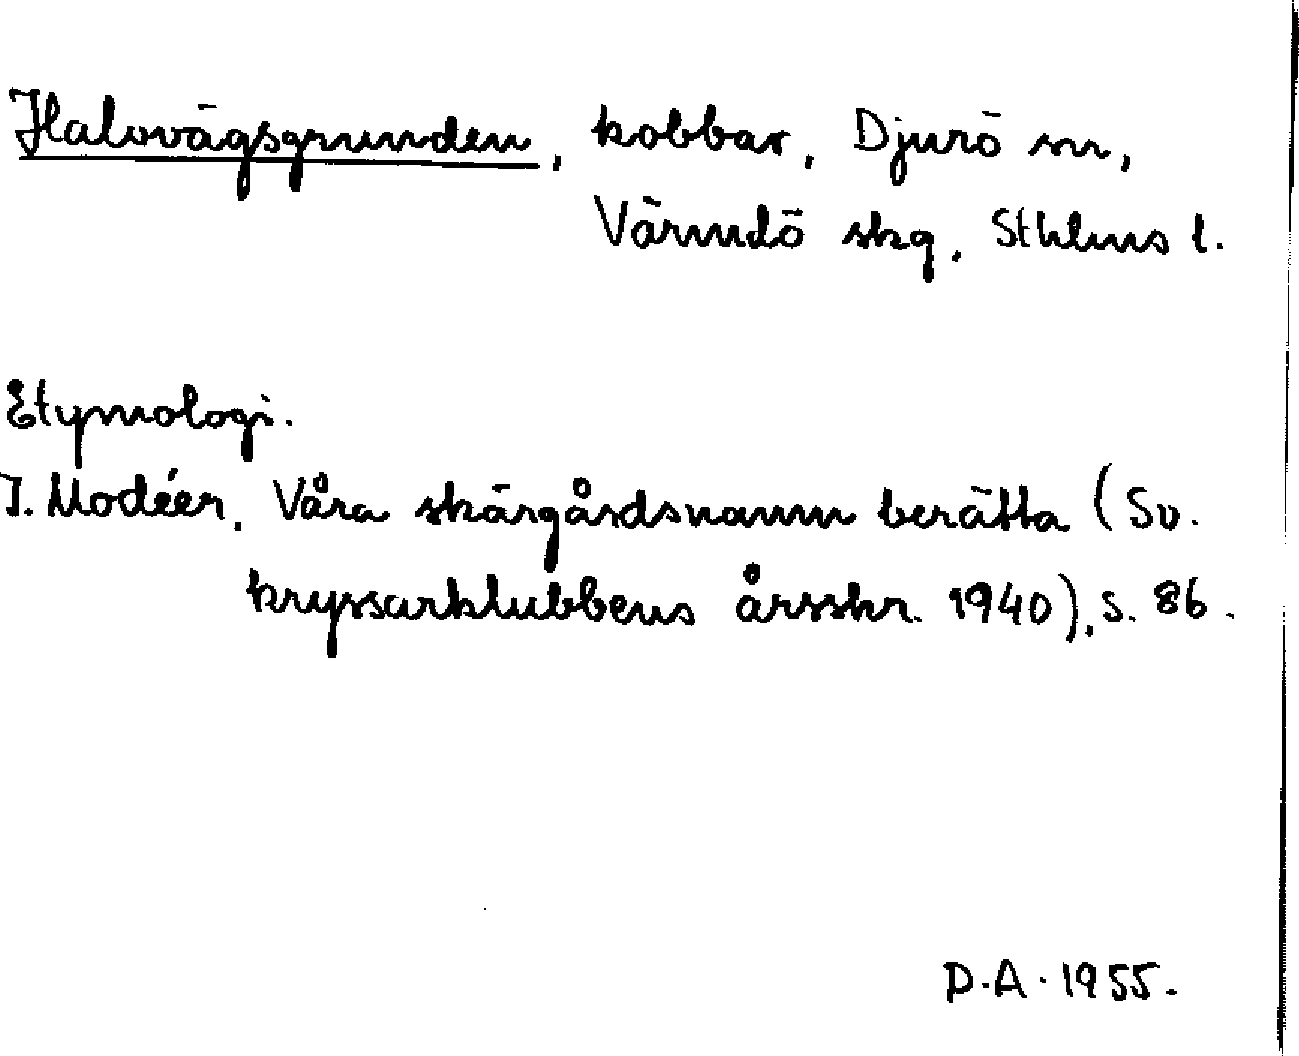 Halovägsgrunden, kobbar, Djurö sn,
Värmdö skg, Sthlms l.
Etymologi.
I. Modéer, Våra skärgårdsnamn berätta (Sv.
kryssarklubbens årsskr. 1940), s. 86.
D.A. 1955.